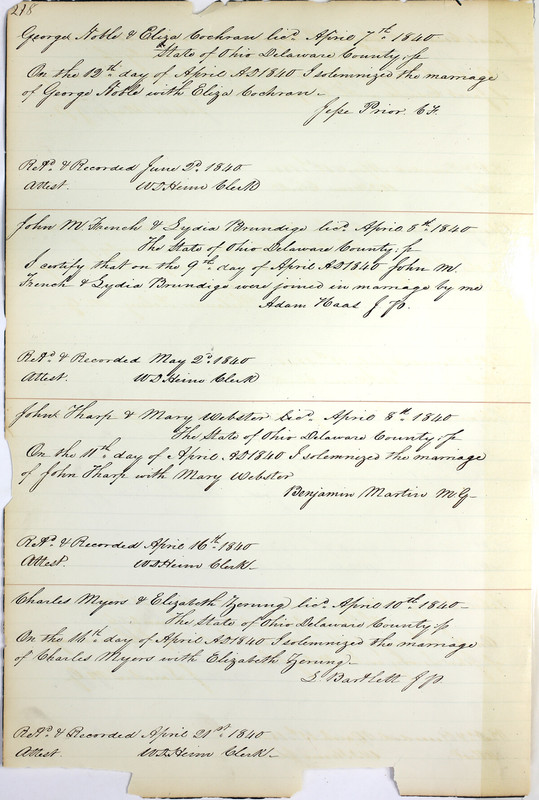 218
George Noble & Eliza Cochran licd. April 7th. 1840
State of Ohio Delaware County: ss
On the 12th. day of April AD 1840 I solemnized the marriage
of George Noble with Eliza Cochran –
Jesse Prior.
Retd. & Recorded June 2d. 1840
Attest. W D Heim Clerk
John M French & Lydia Brundige licd. April 8th. 1840
The State of Ohio Delaware County: ss
I certify that on the 9th. day of April AD 1840 John M.
French & Lydia Brundige were joined in marriage by me
Adam Haas J P.
Retd. & Recorded May 2d. 1840
Attest. W D Heim Clerk
John Tharp & Mary Webster licd. April 8th. 1840
The State of Ohio Delaware County: ss
On the 11th. day of April AD 1840 I solemnized the marriage
of John Tharp with Mary Webster
Benjamin Martin M G –
Retd. & Recorded April 16th. 1840
Attest. W D Heim Clerk –
Charles Myers & Elizabeth licd. April 10th. 1840 –
The State of Ohio Delaware County: ss
On the day of April AD 1840 I solemnized the marriage
of Charles Myers with Elizabeth
S Bartlett J P
Retd. & Recorded April 21st. 1840
Attest. W D Heim Clerk –